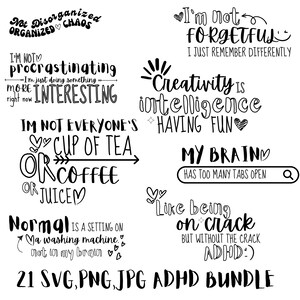 Not Disorganized
ORGANIZED CHAOS
I'M NOT
procrastinating
I'm just doing something
MORE
right now
INTERESTING
I'm not
FORGETFUL
I JUST REMEMBER DIFFERENTLY
Creativity is
intelligence
HAVING FUN
I'M NOT EVERYONE'S
CUP OF TEA
OR
COFFEE
OR
JUICE
MY BRAIN
HAS TOO MANY TABS OPEN
Normal IS A SETTING ON
a washing machine,
not in my brain
Like being
on crack
BUT WITHOUT THE CRACK
ADHD:)
21 SVG,PNG,JPG ADHD BUNDLE